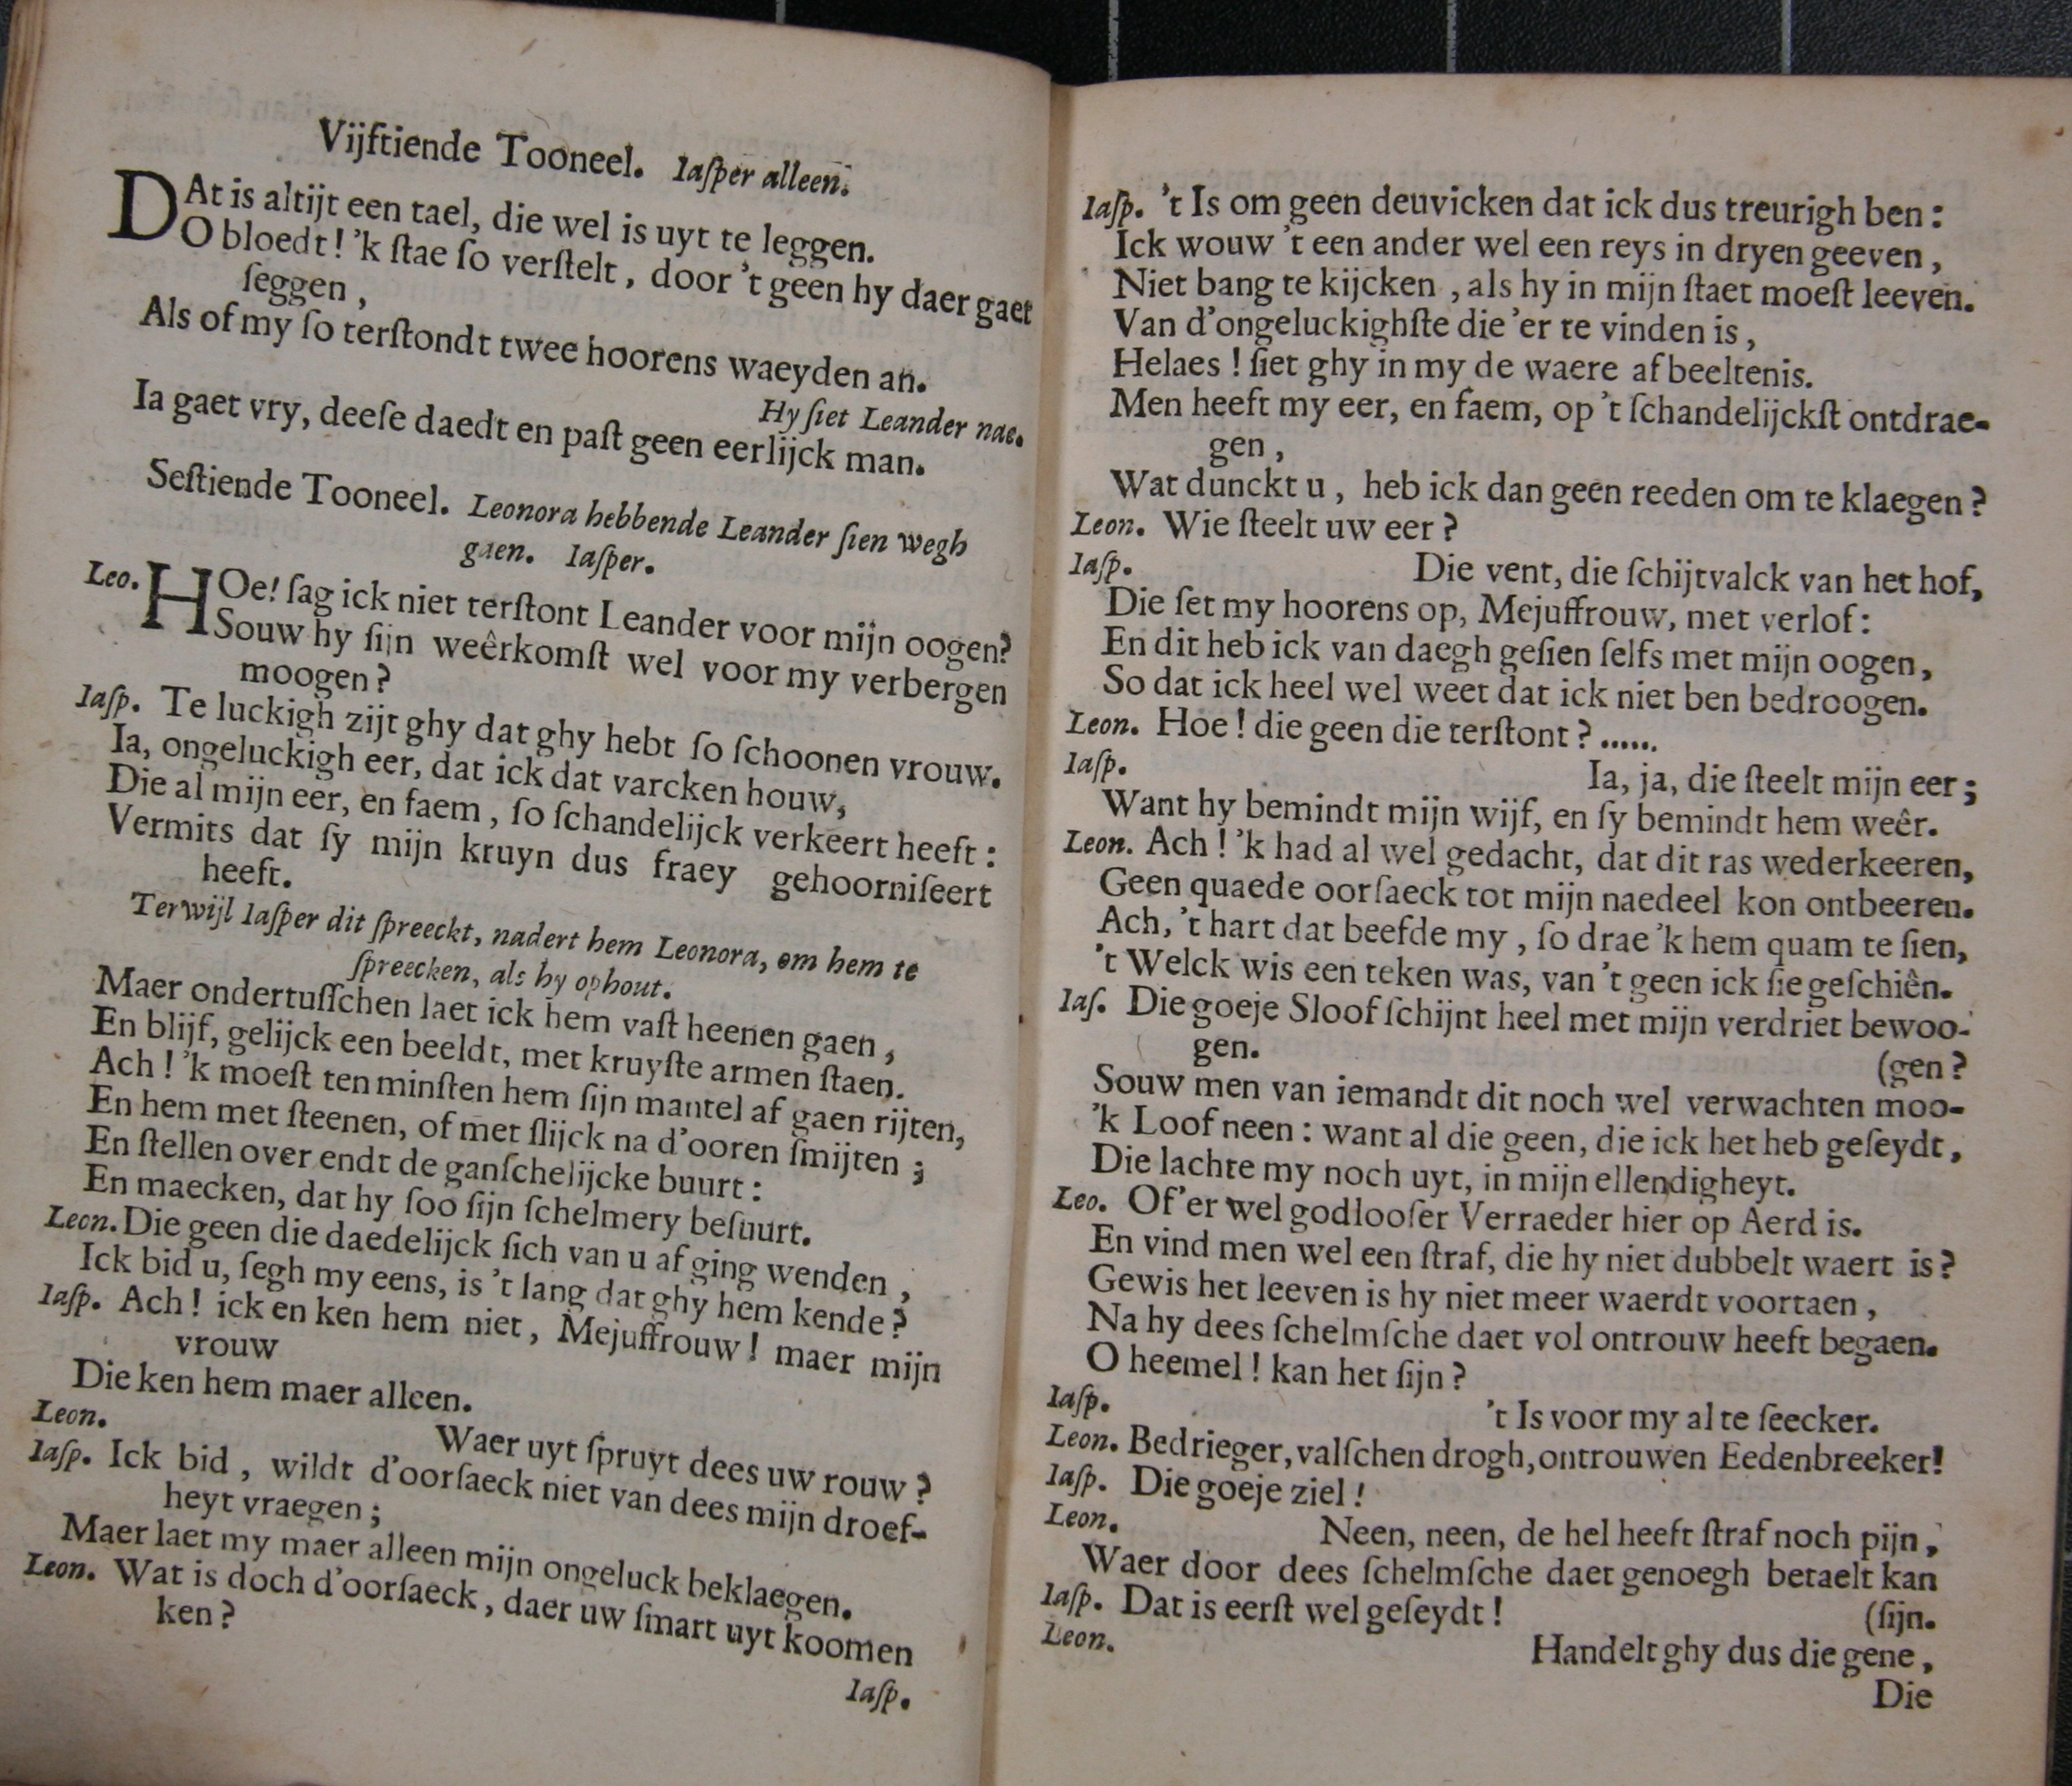 Vijftiende Tooneel. Iaſper alleen.
DAt is altijt een tael, die wel is uyt te leggen.
O bloedt! 'k ſtae ſo verſtelt, door 't geen hy daer gaet
ſeggen,
Als of my ſo terſtondt twee hoorens waeyden an.
Hy ſiet Leander nae.
Ia gaet vry, deeſe daedt en paſt geen eerlijck man.
Seſtiende Tooneel. Leonora hebbende Leander ſien wegh
gaen. Iaſper.
Leo. HOe! ſag ick niet terſtont Leander voor mijn oogen?
Souw hy ſijn weêrkomſt wel voor my verbergen
moogen?
Iaſp. Te luckigh zijt ghy dat ghy hebt ſo ſchoonen vrouw.
Ia, ongeluckigh eer, dat ick dat varcken houw,
Die al mijn eer, en faem, ſo ſchandelijck verkeert heeft:
Vermits dat ſy mijn kruyn dus fraey gehoorniſeert
heeft.
Terwijl Iaſper dit ſpreeckt, nadert hem Leonora, om hem te
ſpreecken, als hy ophout.
Maer ondertuſſchen laet ick hem vaſt heenen gaen,
En blijf, gelijck een beeldt, met kruyſte armen ſtaen.
Ach! 'k moeſt ten minſten hem ſijn mantel af gaen rijten,
En hem met ſteenen, of met ſlijck na d'ooren ſmijten;
En ſtellen over endt de ganſchelijcke buurt:
En maecken, dat hy ſoo ſijn ſchelmery beſuurt.
Leon. Die geen die daedelijck ſich van u af ging wenden,
Ick bid u, ſegh my eens, is 't lang dat ghy hem kende?
Iaſp. Ach! ick en ken hem niet, Mejuffrouw! maer mijn
vrouw
Die ken hem maer alleen.
Leon. Waer uyt ſpruyt dees uw rouw?
Iaſp. Ick bid, wildt d'oorſaeck niet van dees mijn droef-
heyt vraegen;
Maer laet my maer alleen mijn ongeluck beklaegen.
Leon. Wat is doch d'oorſaeck, daer uw ſmart uyt koomen
ken?
Iaſp.
Iaſp. 't Is om geen deuvicken dat ick dus treurigh ben:
Ick wouw 't een ander wel een reys in dryen geeven,
Niet bang te kijcken, als hy in mijn ſtaet moeſt leeven.
Van d'ongeluckighſte die 'er te vinden is,
Helaes! ſiet ghy in my de waere af beeltenis.
Men heeft my eer, en faem, op 't ſchandelijckſt ontdrae-
gen,
Wat dunckt u, heb ick dan geen reeden om te klaegen?
Leon. Wie ſteelt uw eer?
Iaſp. Die vent, die ſchijtvalck van het hof,
Die ſet my hoorens op, Mejuffrouw, met verlof:
En dit heb ick van daegh geſien ſelfs met mijn oogen,
So dat ick heel wel weet dat ick niet ben bedroogen.
Leon. Hoe! die geen die terſtont? ......
Iaſp. Ia, ja, die ſteelt mijn eer;
Want hy bemindt mijn wijf, en ſy bemindt hem weêr.
Leon. Ach! 'k had al wel gedacht, dat dit ras wederkeeren,
Geen quaede oorſaeck tot mijn naedeel kon ontbeeren.
Ach, 't hart dat beefde my, ſo drae 'k hem quam te ſien,
't Welck wis een teken was, van 't geen ick ſie geſchiên.
Iaſ. Die goeje Sloof ſchijnt heel met mijn verdriet bewoo-
gen. (gen?
Souw men van iemandt dit noch wel verwachten moo-
'k Loof neen: want al die geen, die ick het heb geſeydt,
Die lachte my noch uyt, in mijn ellendigheyt.
Leo. Of'er wel godlooſer Verraeder hier op Aerd is.
En vind men wel een ſtraf, die hy niet dubbelt waert is?
Gewis het leeven is hy niet meer waerdt voortaen,
Na hy dees ſchelmſche daet vol ontrouw heeft begaen.
O heemel! kan het ſijn?
Iaſp. 't Is voor my al te ſeecker.
Leon. Bedrieger, valſchen drogh, ontrouwen Eedenbreeker!
Iaſp. Die goeje ziel!
Leon. Neen, neen, de hel heeft ſtraf noch pijn,
Waer door dees ſchelmſche daet genoegh betaelt kan
Iaſp. Dat is eerſt wel geſeydt! (ſijn.
Leon. Handelt ghy dus die gene,
Die